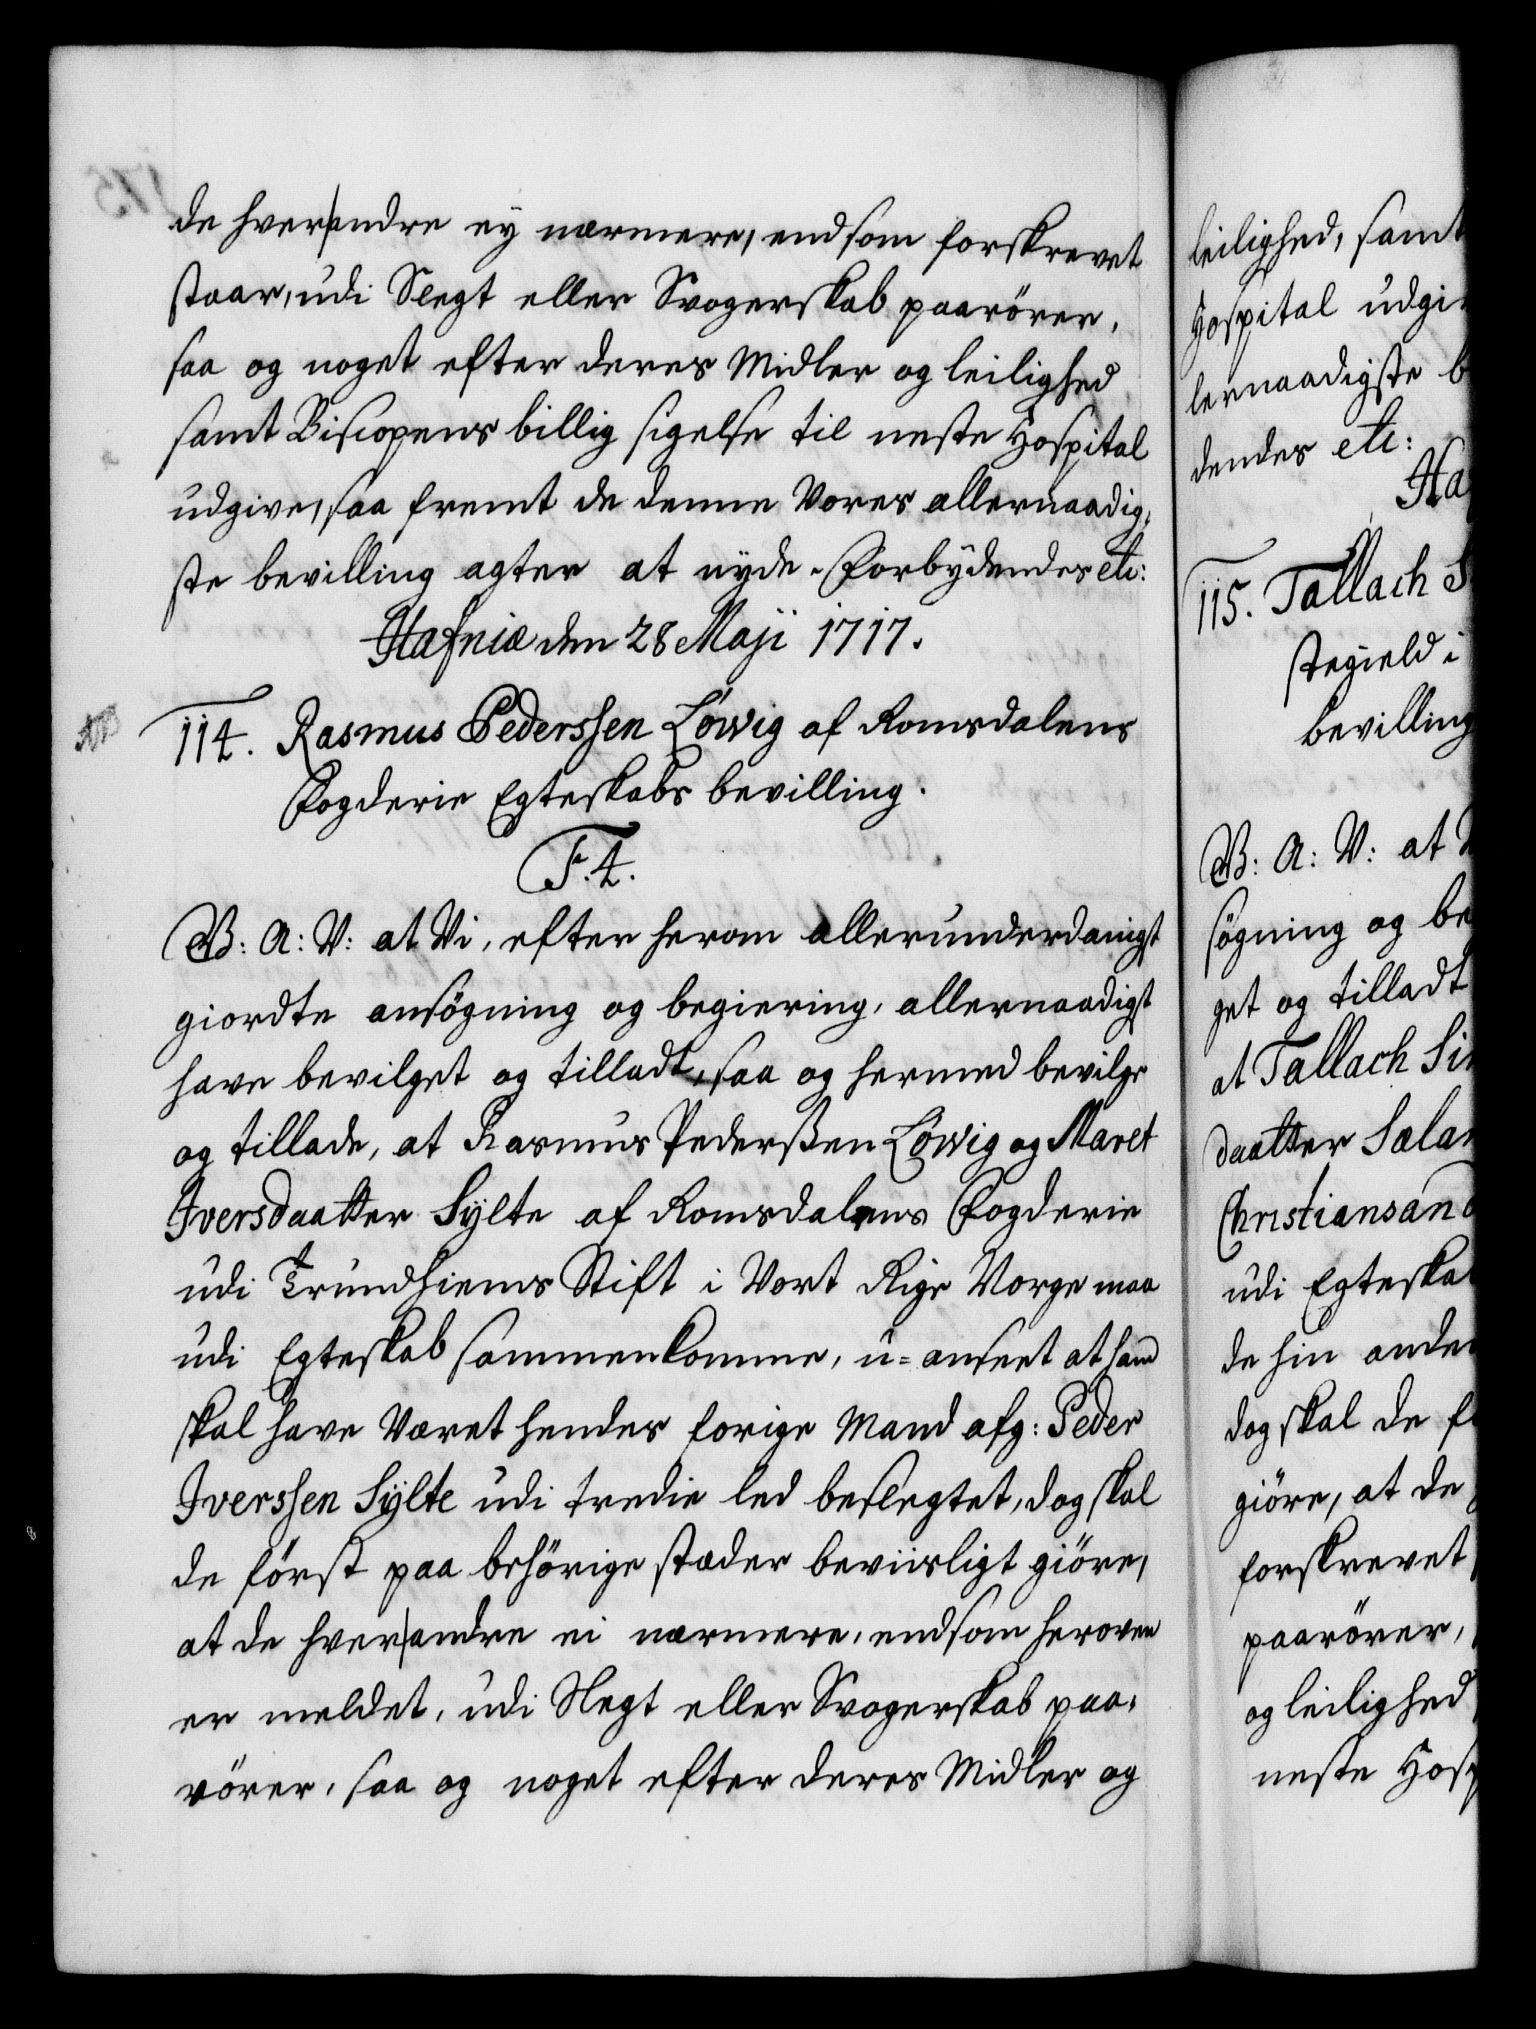 de hver andre ey nærmere, end som forskrevet
staar, udi Slegt eller Svogerskab paarörer,
saa og noget efter deres Midler og leilighed
samt Biscopens billig sigelse til neste Hospital
udgive, saa fremt de denne Vores allernaadig-
ste bevilling agter at nyde. Forbydendes etc:
Hafniæ den 28 Maji 1717.
114. Rasmus Pederssen Löwig af Romsdalens
Fogderie Egteskabs bevilling.
F. 4.
G. B: A: V: at Vi, efter herom allerunderdanigst
giordte ansögning og begiering, allernaadigst
have bevilget og tilladt, saa og hermed bevilge
og tillade, at Rasmus Pederßen Löwig og Maret
Iversdaatter Sylte af Romsdalens Fogderie
udi Trundhiems Stift i Vort Rige Norge maa
udi Egteskab sammenkomme, u-anseet at hand
skal have Været hendes forige Mand afg: Peder
Iverssen Sylte udi tredie led beslegtet, dog skal
de först paa behörige stæder beviisligt giöre,
at de hver andre ei nærmere, end som heroven
er meldet, udi Slegt eller Svogerskab paa-
rörer, saa og noget efter deres Midler og
leilighed, samt
Hospital udgi
lernaadigste b
dendes etc:
Ha
115. Tallach S
stegield i
bevilling
B: A: V: at
söguing og be
get og tilladt
at Tallach Si
daatter Sala
Christiansand
udi Egteska
de hin ande
dog skal de f
giöre, at de
forskrevet
paarörer,
og leilighed
neste Hosp